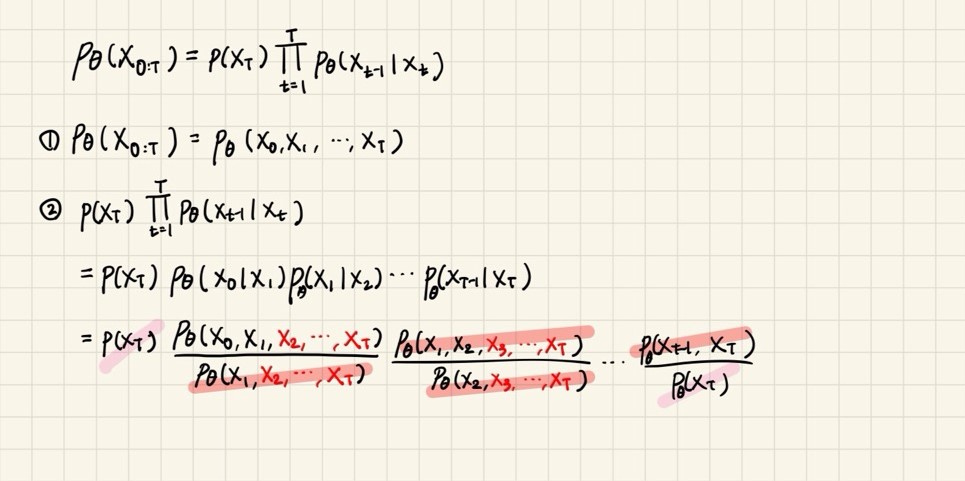 Pθ(X₀:T) = P(X_T) ∏_{t=1}^{T} Pθ(X_{t-1} | X_t)
① Pθ(X₀:T) = Pθ(X₀, X₁, ..., X_T)
② P(X_T) ∏_{t=1}^{T} Pθ(X_{t-1} | X_t)
= P(X_T) Pθ(X₀ | X₁) Pθ(X₁ | X₂) ... Pθ(X_{T-1} | X_T)
= P(X_T) \frac{Pθ(X₀, X₁, X₂, ..., X_T)}{Pθ(X₁, X₂, ..., X_T)} \frac{Pθ(X₁, X₂, X₃, ..., X_T)}{Pθ(X₂, X₃, ..., X_T)} ... \frac{Pθ(X_{T-1}, X_T)}{Pθ(X_T)}